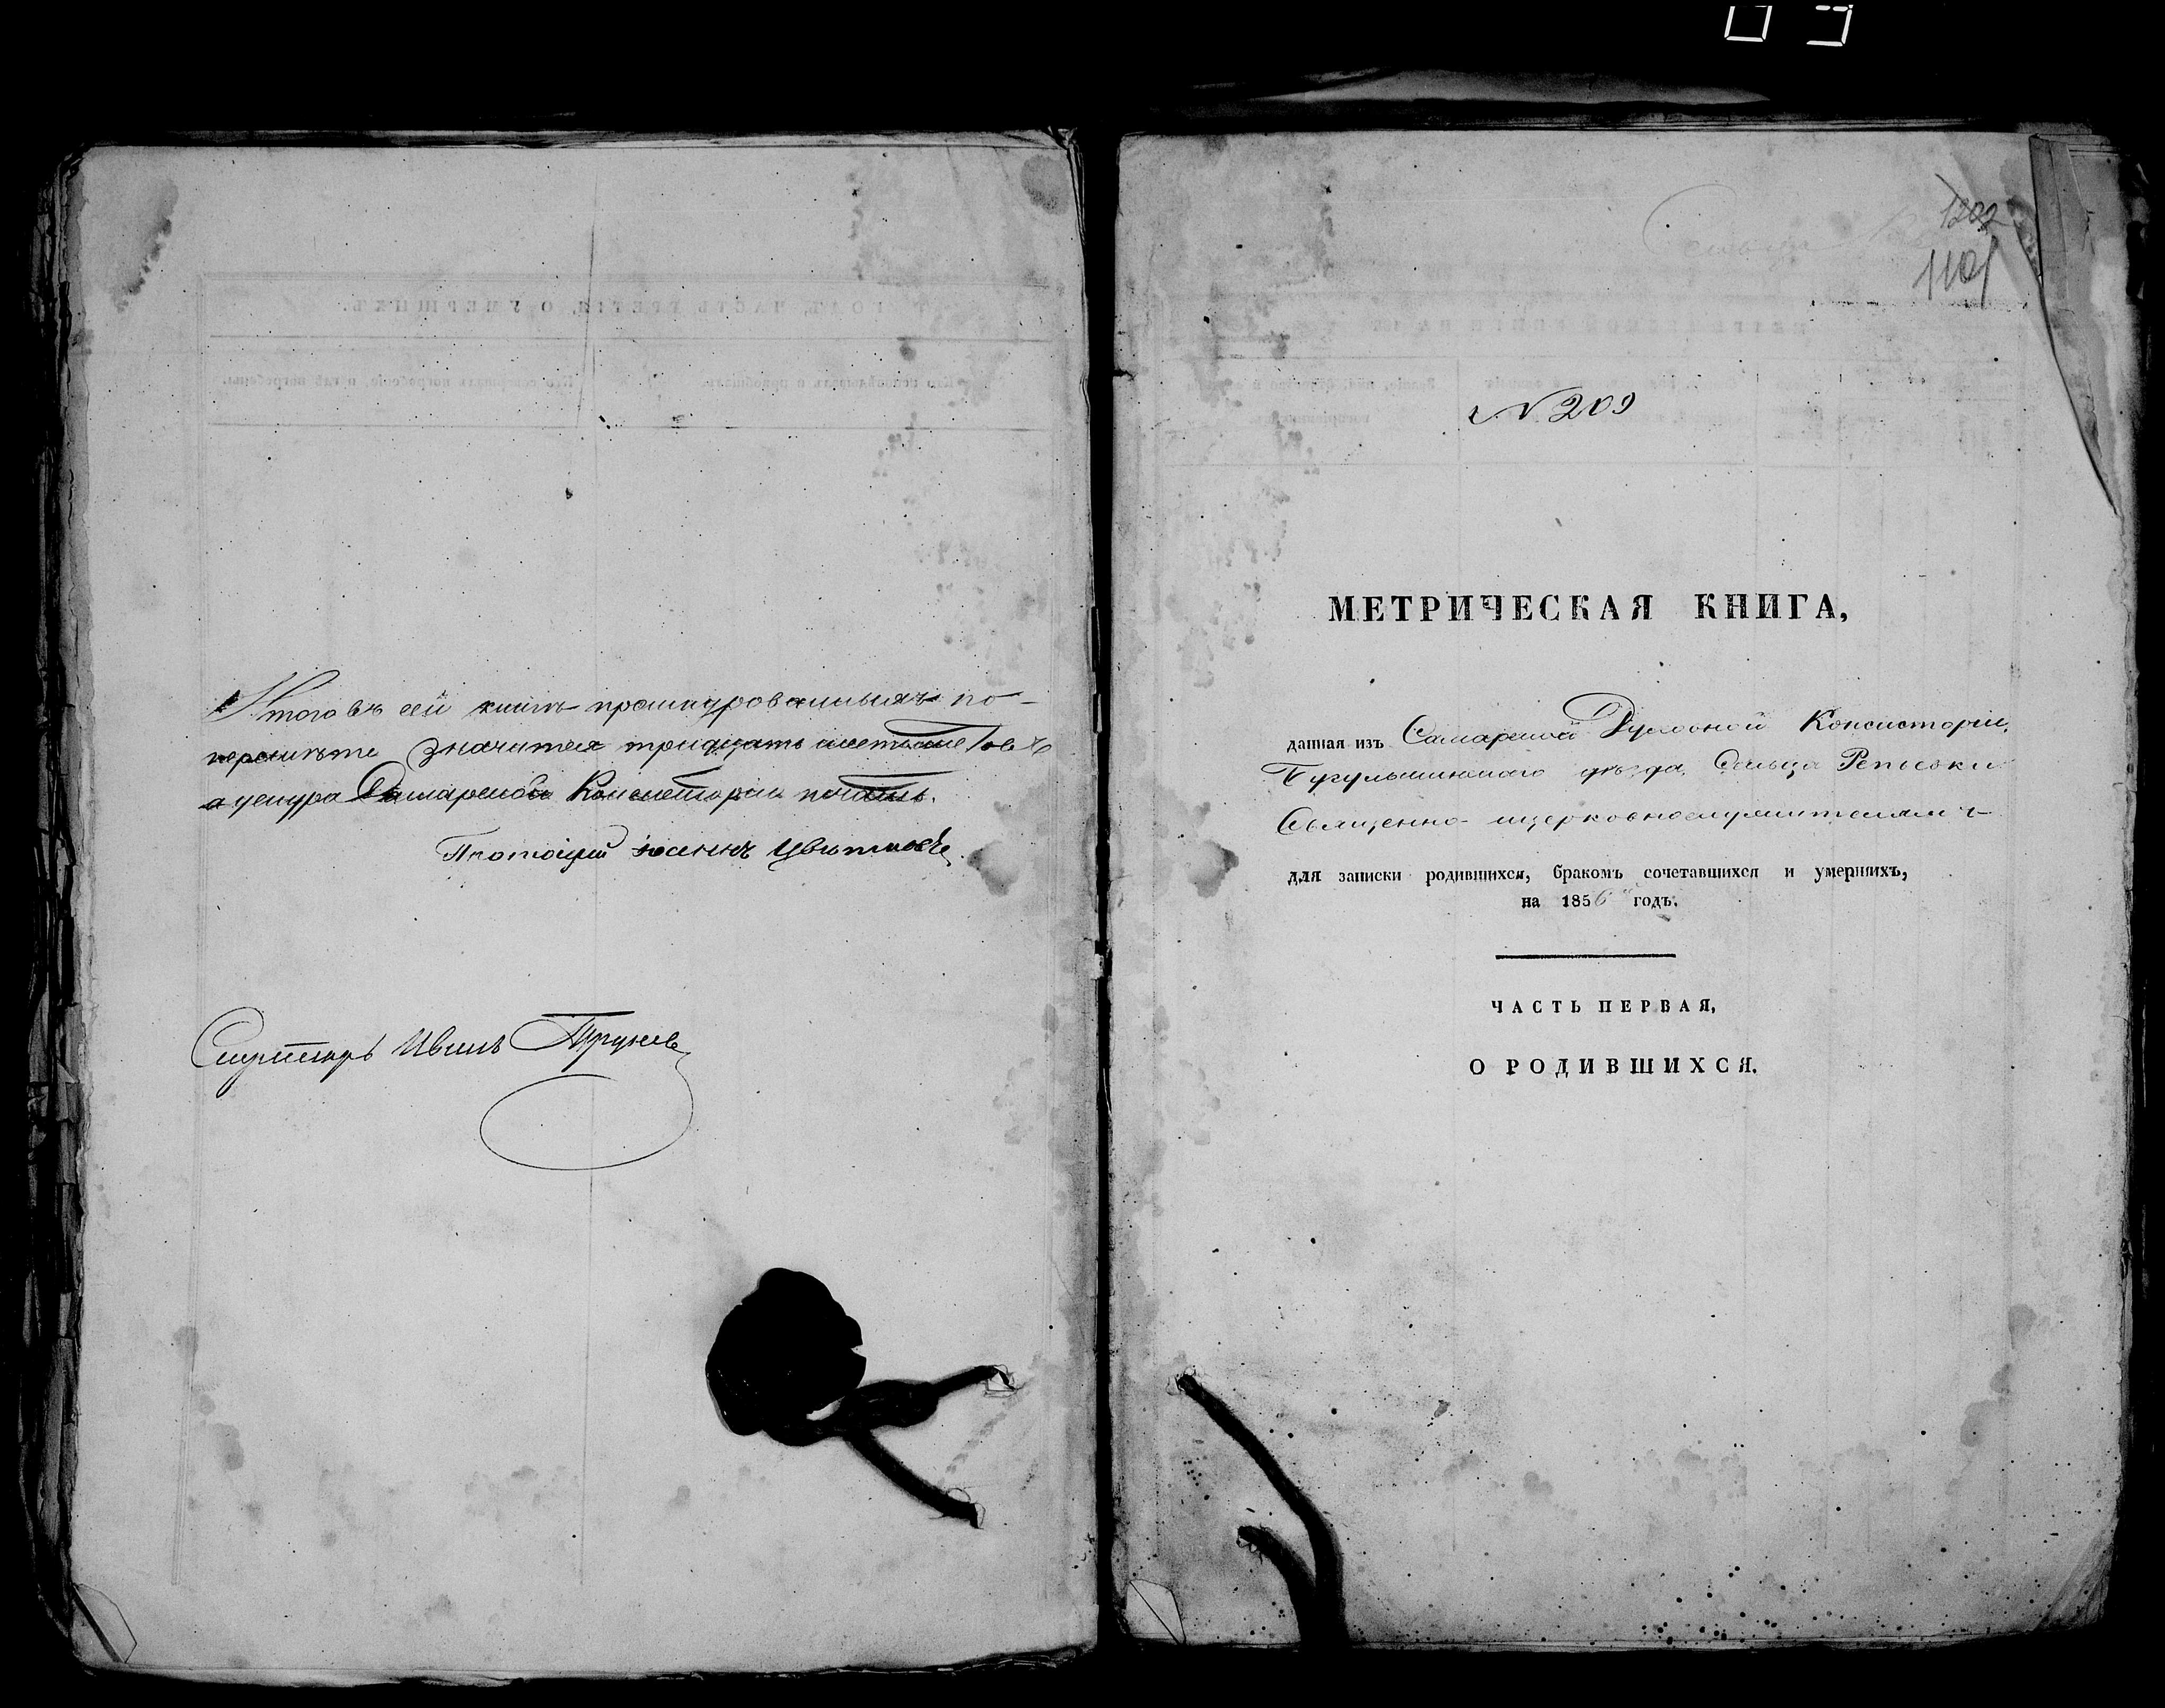 Итого въ сей книгѣ прошнурованныхъ по-
перошнѣте значится тридцать шесть листовъ
а у шнура Самарской Консисторіи печать.
Протоіерей Іоаннъ Цвѣтковъ
Секретарь Иванъ
1202
1101
№ 209
МЕТРИЧЕСКАЯ КНИГА,
данная изъ Самарской Духовной Консисторіи,
Бугульминскаго уѣзда, Сельца Репьевки
Священно-церковнослужителямъ
для записки родившихся, бракомъ сочетавшихся и умершихъ,
на 1856 годъ.
ЧАСТЬ ПЕРВАЯ,
О РОДИВШИХСЯ.